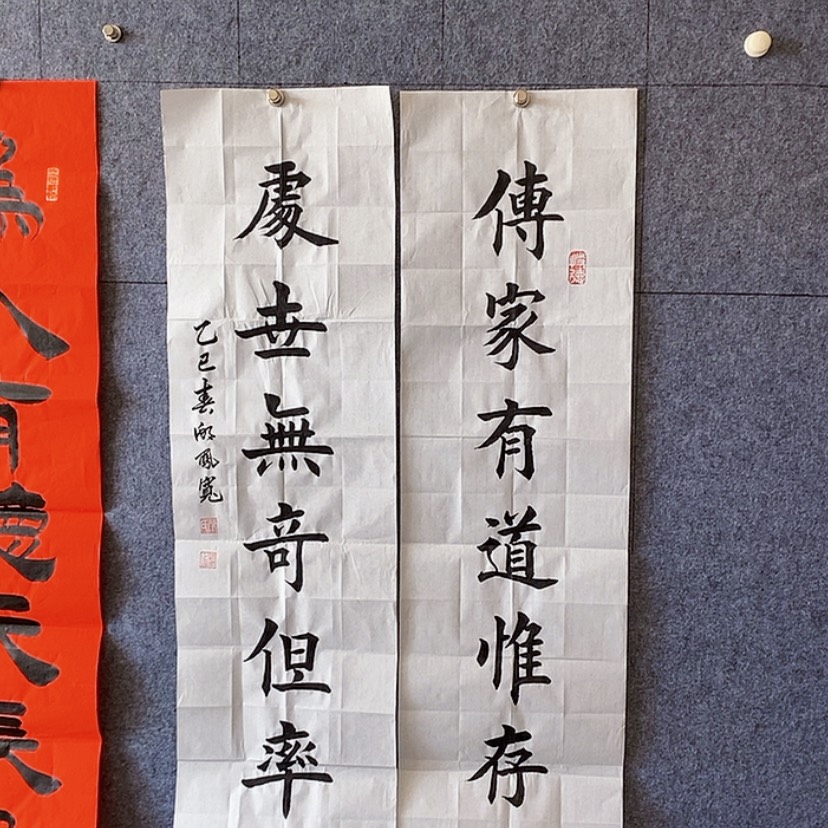 傳家有道惟存
處世無竒但率
乙巳春
為人有德天長